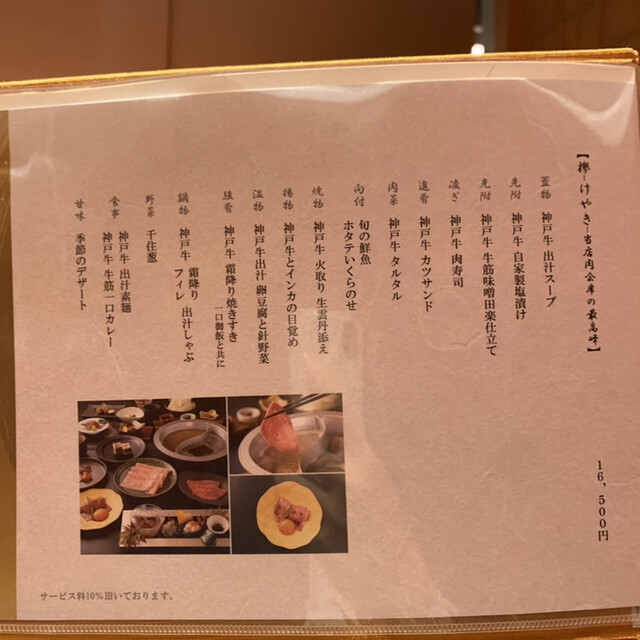 【欅-けやき-当店肉会席の最高峰】
蓋物 神戸牛 出汁スープ
先附 神戸牛 自家製塩漬け
先附 神戸牛 牛筋味噌田楽仕立て
凌ぎ 神戸牛 肉寿司
進肴 神戸牛 カツサンド
肉菜 神戸牛 タルタル
向付 旬の鮮魚
ホタテいくらのせ
焼物 神戸牛 火取り 生雲丹添え
揚物 神戸牛とインカの目覚め
温物 神戸牛出汁 卵豆腐と針野菜
強肴 神戸牛 霜降り焼きすき
一口御飯と共に
鍋物 神戸牛 霜降り 出汁しゃぶ
フィレ
野菜 千住葱
食事 神戸牛 出汁素麺
神戸牛 牛筋一口カレー
甘味 季節のデザート
16,500円
サービス料10%頂いております。